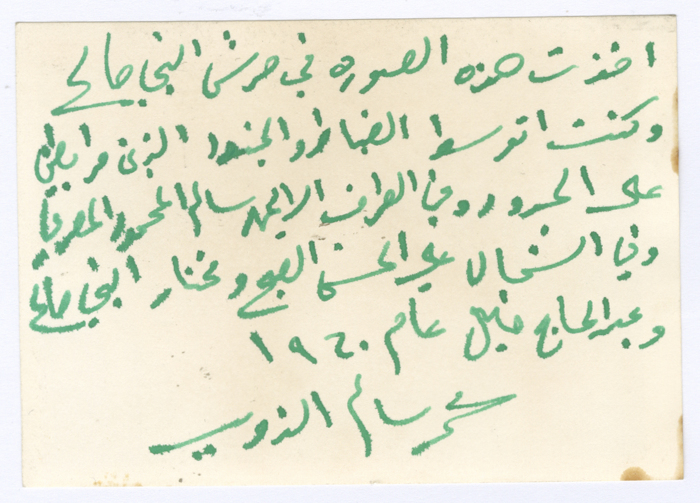 اخذت هذه الصوره في حرش النبي صالح
وكنت اتوسط الضباط والجنود الذين مرابطين
على الحدود وفي الطرف الايمن سالم المحمود
وفي الشمال علي الحسن الصبح ومختار النبي صالح
وعبد الحاج خليل عام ١٩٦٠
سالم الذويب